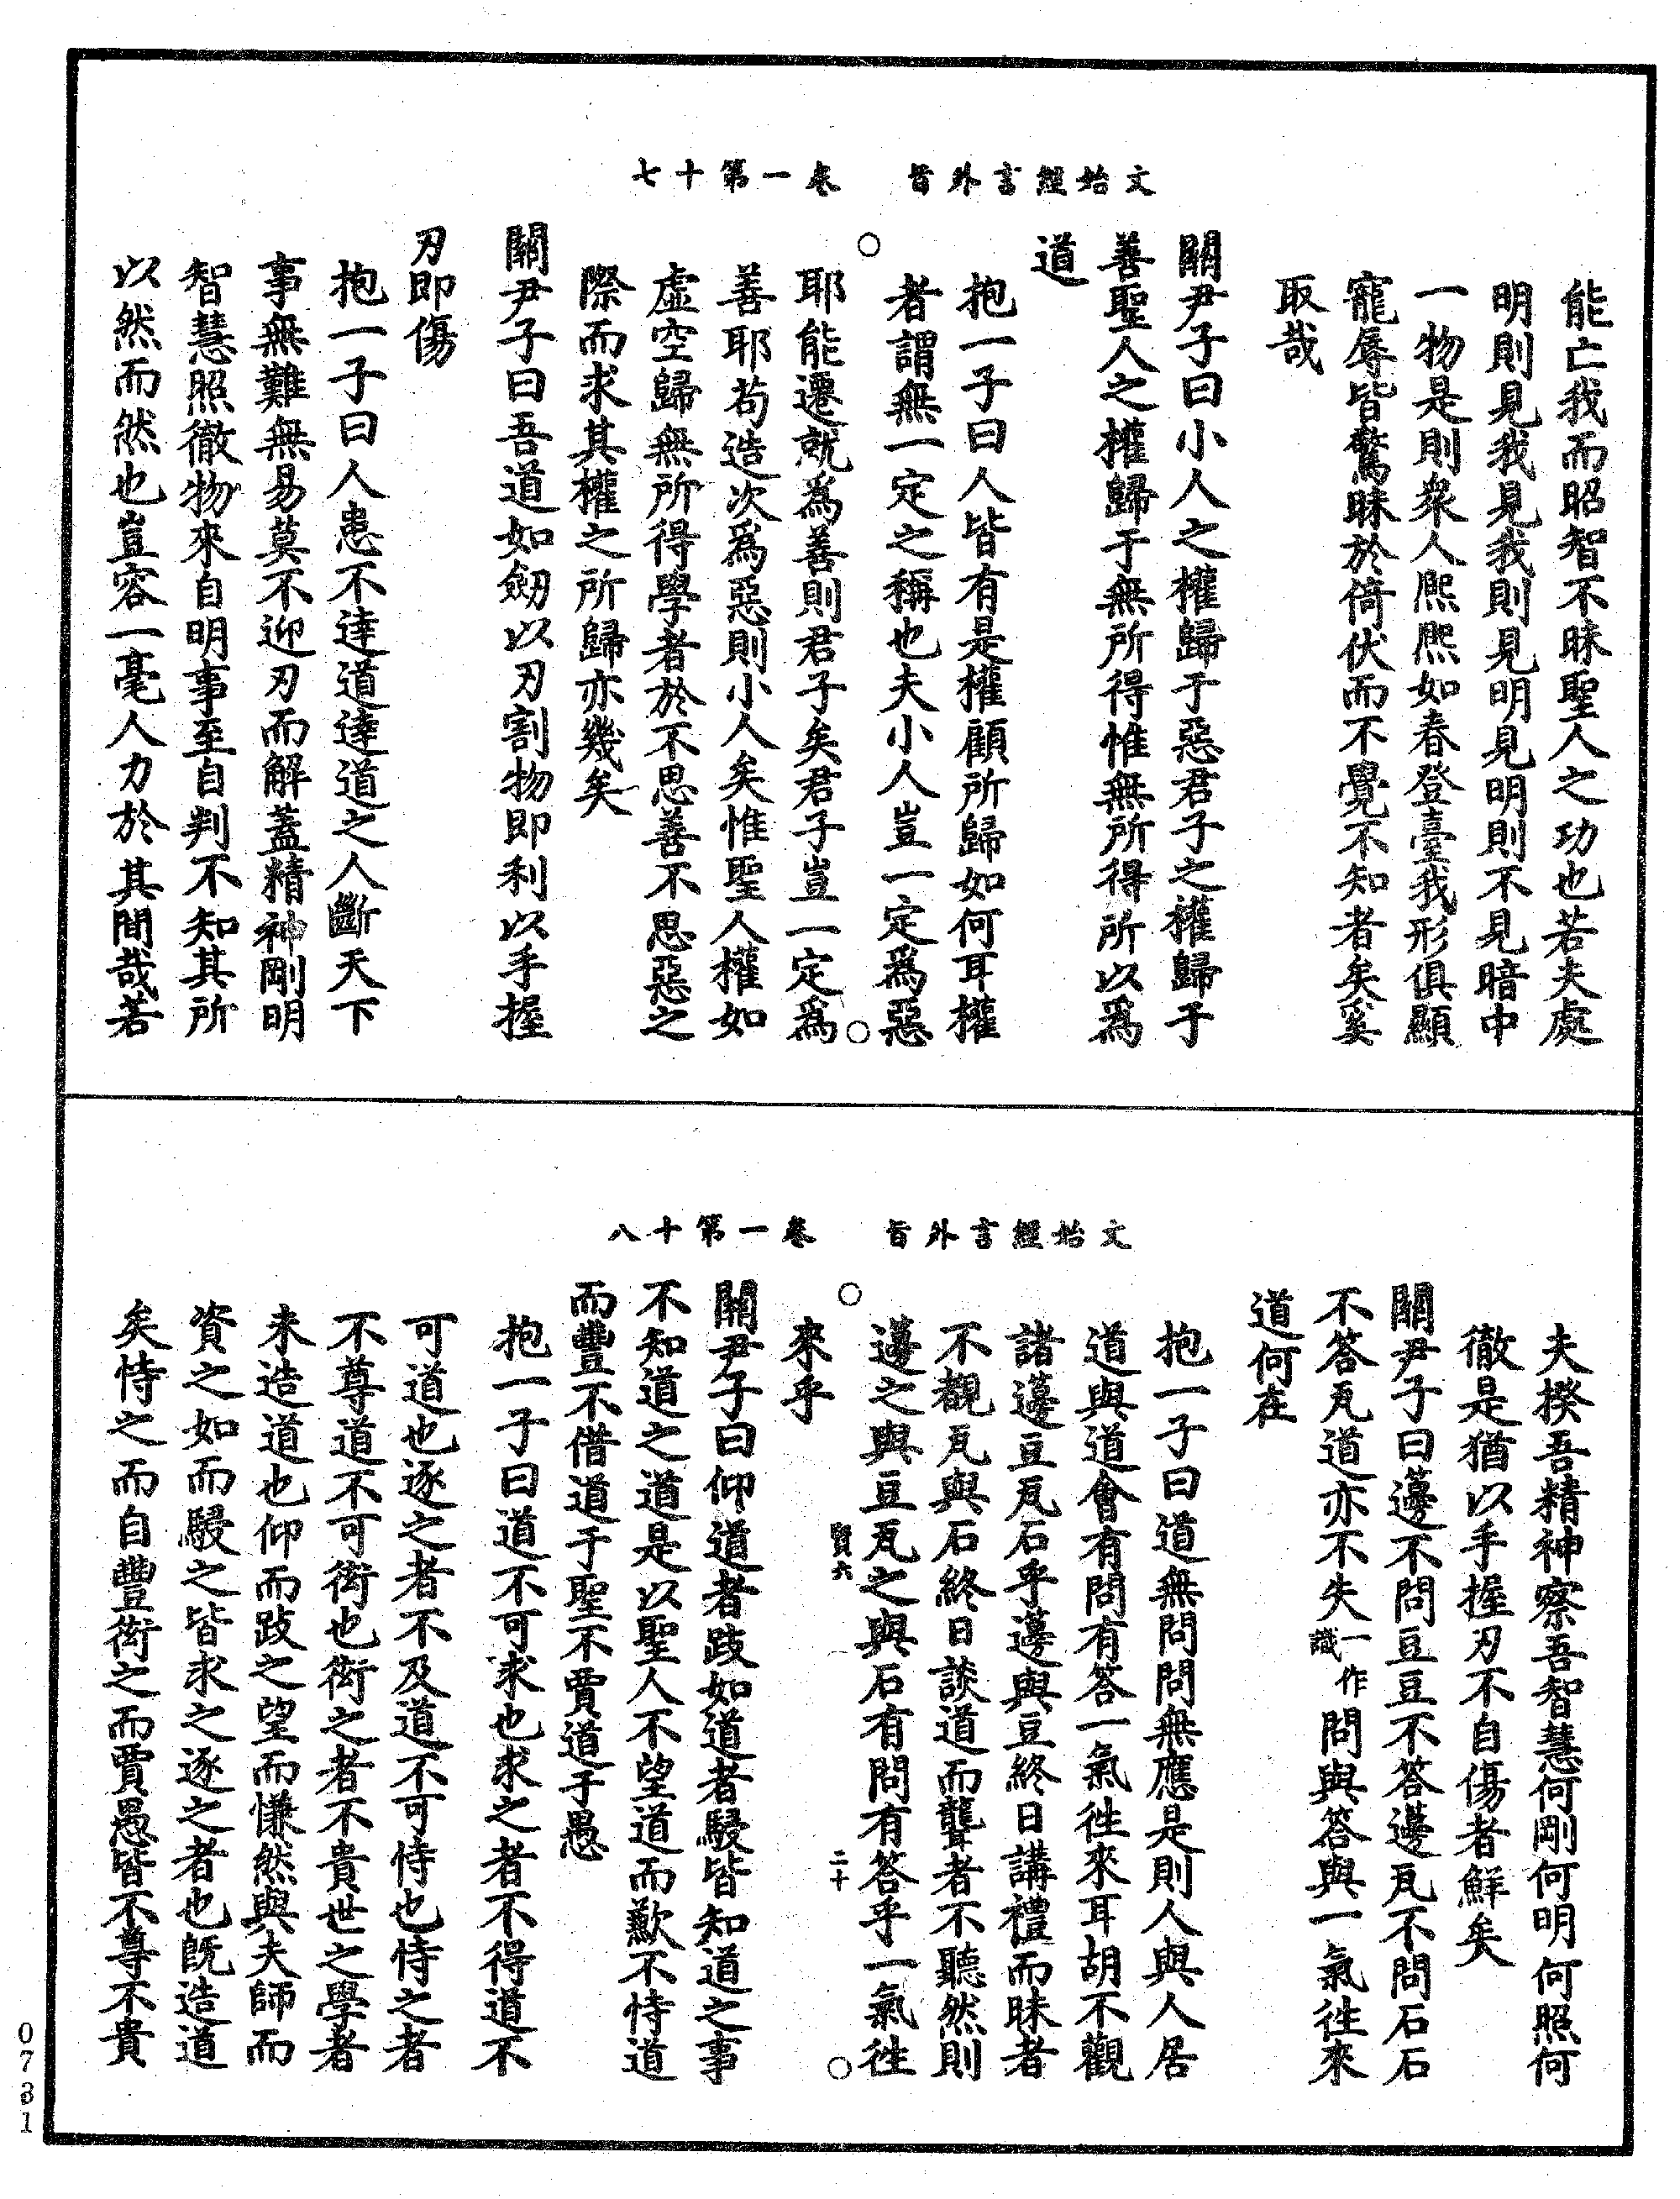 文始經言外旨　卷一第十七
能亡我而昭智不昧聖人之功也若夫處
明則見我見我則見明見明則不見暗中
一物是則衆人熈熈如春登臺我形俱顯
寵辱皆驚昧於倚伏而不覺不知者矣奚
取哉
關尹子曰小人之權歸于惡君子之權歸于
善聖人之權歸于無所得惟無所得所以爲
道
抱一子曰人皆有是權顧所歸如何耳權
者謂無一定之稱也夫小人豈一定爲惡
耶能遷就為善則君子矣君子豈一定爲
善耶苟造次爲惡則小人矣惟聖人權如
虛空歸無所得學者於不思善不思惡之
際而求其權之所歸亦幾矣
關尹子曰吾道如劒以刃割物即利以手握
刃即傷
抱一子曰人患不達道達道之人斷天下
事無難無易莫不迎刃而解蓋精神剛明
智慧照徹物來自明事至自判不知其所
以然而然也豈容一毫人力於其間哉若
文始經言外旨　卷一第十八
夫揆吾精神察吾智慧何剛何明何照何
徹是猶以手握刃不自傷者鮮矣
關尹子曰籩不問豆豆不答籩瓦不問石石
不答瓦道亦不失一作識問與答與一氣徃來
道何在
抱一子曰道無問問無應是則人與人居
道與道會有問有答一氣徃來耳胡不觀
諸籩豆瓦石乎籩與豆終日講禮而昧者
不觀瓦與石終日談道而聾者不聽然則
籩之與豆瓦之與石有問有答乎一氣徃
賢六　二十
來乎
關尹子曰仰道者跂如道者駸皆知道之事
不知道之道是以聖人不望道而歉不恃道
而豐不借道于聖不賈道于愚
抱一子曰道不可求也求之者不得道不
可道也逐之者不及道不可恃也恃之者
不尊道不可衒也衒之者不貴世之學者
未造道也仰而跂之望而慊然與夫師而
資之如而駸之皆求之逐之者也旣造道
矣恃之而自豐衒之而賈愚皆不尊不貴
0731